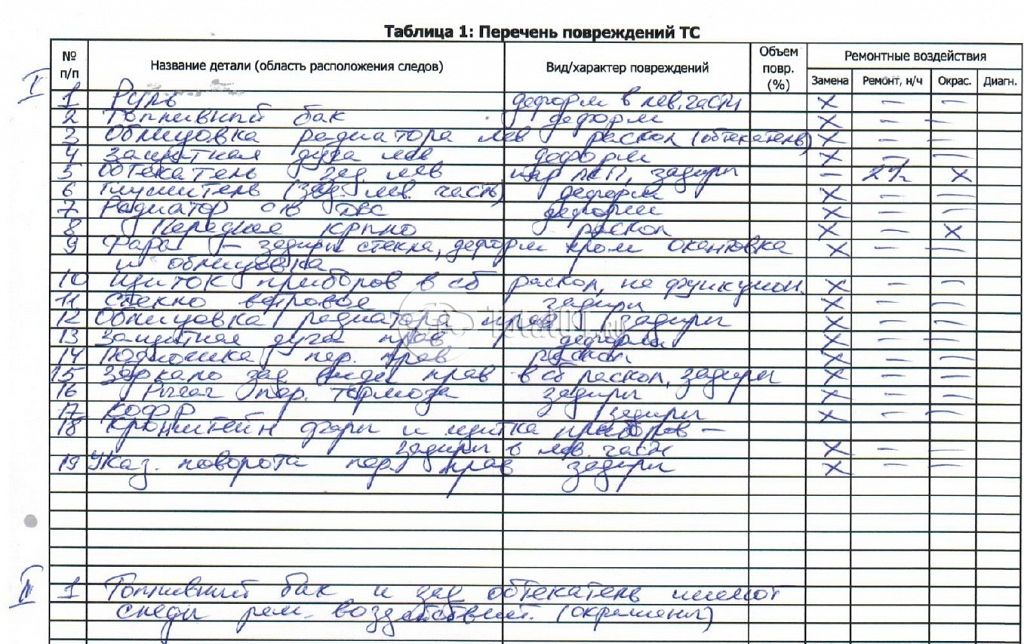 Таблица 1: Перечень повреждений ТС
№ п/п Название детали (область расположения следов) Вид/характер повреждений Объем повр. (%) Ремонтные воздействия
Замена Ремонт, н/ч Окрас. Диагн.
I
1 Руль деформ в лев. части х – –
2 Топливный бак деформ х – –
3 Облицовка радиатора лев раскол (обтекатель) х – –
4 Защитная дуга лев деформ х – –
5 Обтекатель зад лев нар ЛКП, задиры – 2 х
6 Глушитель (зад. лев. часть) деформ х – –
7 Радиатор деформ х – –
8 Переднее крыло раскол х – х
9 Фара – задиры стекла, деформ хром окантовка х – –
и облицовка
10 Щиток приборов в сб раскол, не функцион. х – –
11 Стекло ветровое задиры х – –
12 Облицовка радиатора прав задиры х – –
13 Защитная дуга прав деформ х – –
14 Подножка пер. прав раскол х – –
15 Зеркало зад вида прав в сб раскол, задиры х – –
16 Рычаг пер. тормоза задиры х – –
17 Кофр задиры х – –
18 Кронштейн фары и щитка приборов –
задиры в лев. части х – –
19 Указ. поворота пер. прав задиры х – –
II
1 Топливный бак и зад обтекатель имеют
следы рем. воздействий. (окрашены)